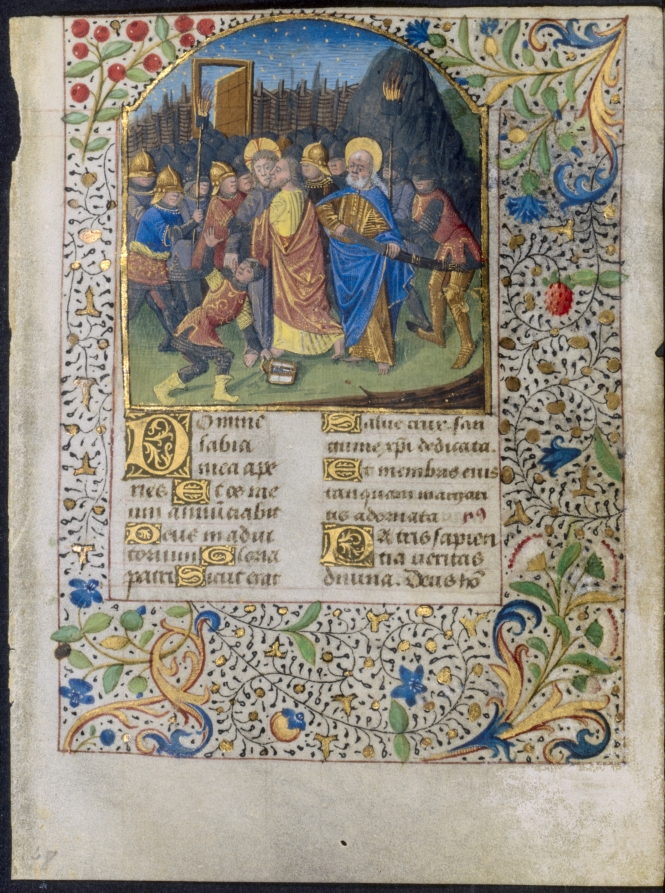 Domine
labia
mea ape
ries Et os me
um annūciabit
Deus in adiu
torium Gloria
patri Sicut erat
Salue crux san
guine xp̄i dedicata.
Et membris eius
tanquam margari
tis adornata.
Patris sapien
tia veritas
diuina. Deus hō